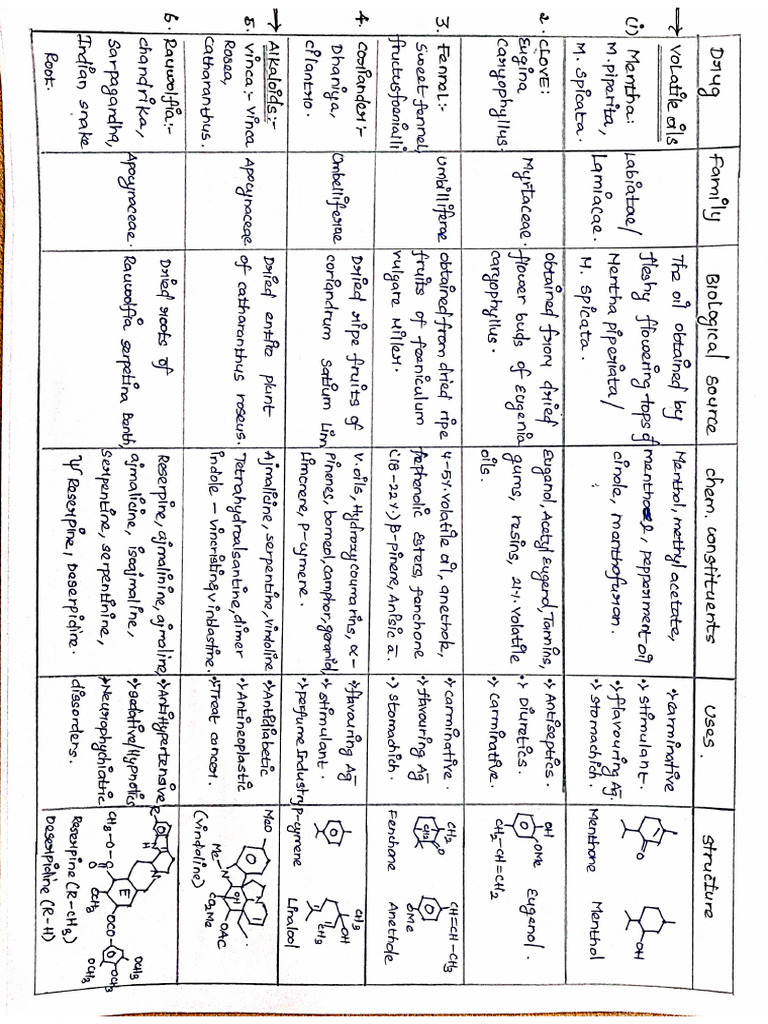 Drug
Family
Biological source
chem. constituents
Uses.
Structure
→ Volatile oils
(i) Mentha:
M. piperita,
M. spicata.
Labiatae/
Lamiacae.
The oil obtained by
fleshy flowering tops of
Mentha piperiata/
M. spicata.
Menthol, methyl acetate,
menthone, pepperment oil
cinole, manthofuran.
•) carminative
•) stimulant.
•) flavouring Ag.
•) stomachich.
Menthone
OH
Menthol
2. CLOVE:
Eugina
Caryophyllus.
Myrtaceae.
obtained from dried
flower buds of Eugenia
caryophyllus.
Eugenol, Acetyl Eugenol, Tannins,
gums, resins, 21% volatile
oils.
•) Antiseptics.
•) Diuretics.
•) carminative.
OH
OMe
CH2-CH=CH2
Eugenol.
3. Fennel:-
Sweet fennel,
fructusfoenialli
Umbilliferae
obtained from dried ripe
fruits of foeniculum
vulgare Miller.
4-5% volatile oil, anethole,
trephenolic Esters, fenchone
(18-22%.) β-pinene, Anisic a.
•) carminative.
•) flavouring Ag
•) stomachich.
CH3
O
CH3
Fenchone
CH=CH-CH3
OMe
Anethole
4. coriander:-
Dhaniya,
cilantro.
Ombelliferae
Dried ripe fruits of
coriandrum satium Lin
V. oils, Hydroxycoumarins, α-
Pinenes, borneol, camphor, geraniol,
Limonene, P-cymene.
•) flavouring Ag
•) stimulant.
•) perfume Industry
p-cymene
CH3
OH
CH3
Linalool
→ Alkaloids:-
5. Vinca:- Vinca
Rosea,
Catharanthus.
Apocynaceae
Dried entie plunt
of catharanthus roseus.
Ajmalicine, serpentine, vindoline
Tetrahydroalsantine, dimer
indole - vincristine, vinblastine.
•) Antidiabetic
•) Antineoplastic
•) Treat cancer.
MeO
Me
OH
OAC
CO2Me
(vindoline)
6. Rauwolfia:-
chandrika,
Sarpagandha,
Indian snake
Root.
Apocynaceae.
Dried roots of
Rauwolfia serpetina Benth,
Reserpine, ajmalinine, ajmaline,
ajmalicine, isoajmaline,
serpentine, serpentinine,
ψ Reserpine, Deserpidine.
•) Antihypertensive
•) sedative/Hypnotics
•) Neurophychiatric
dissorders.
R
N
H
N
E
CH3-O-C
O
OCH3
OCO
OCH3
OCH3
OCH3
Reserpine (R-CH3)
Deserpidine (R-H)